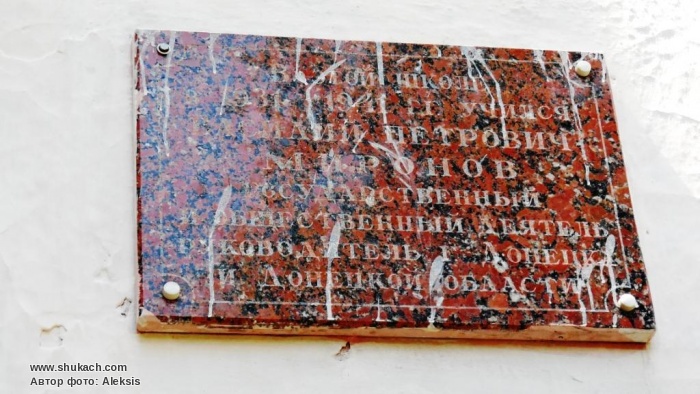 В этой школе
учился
ПЕТРОВИЧ
МИРОНОВ
ГОСУДАРСТВЕННЫЙ
И ОБЩЕСТВЕННЫЙ ДЕЯТЕЛЬ,
РУКОВОДИТЕЛЬ г. ДОНЕЦКА
И ДОНЕЦКОЙ ОБЛАСТИ
www.shukach.com
Автор фото: Aleksis